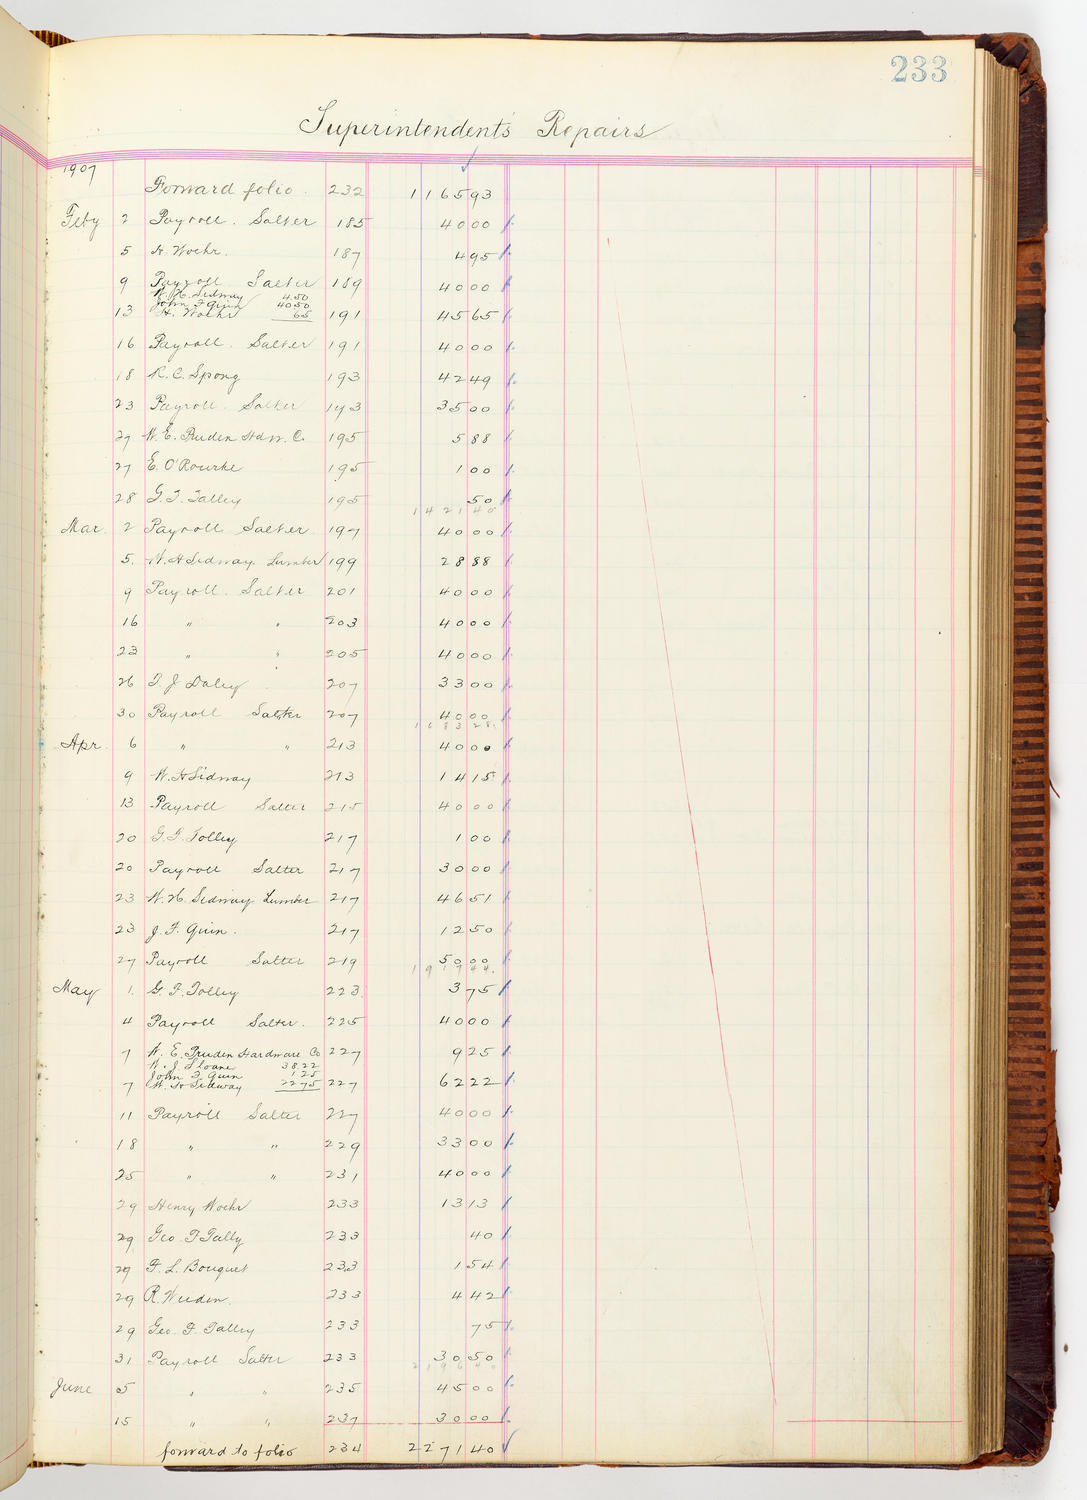 233
Superintendent's Repairs
1907
Forward folio. 232 1165 93
Feby 2 Payroll. Salter 185 40 00
5 H. Woehr. 187 4 95
9 Payroll Salter 189 40 00
W. H. Sidway 4.50
John F Quin 40 50
13 H. Woehr 65 191 45 65
16 Payroll. Salter 191 40 00
18 R. C. Spong 193 42 49
23 Payroll. Salter 193 35 00
27 W. E. Pruden Hdw. C. 195 5 88
27 E. O'Rourke 195 1 00
28 G. F. Talley 195 50
1421 40
Mar. 2 Payroll Salter 197 40 00
5. W. H Sidway Lumber 199 28 88
9 Payroll. Salter 201 40 00
16 " " 203 40 00
23 " " 205 40 00
26 T. J Daley 207 33 00
30 Payroll Salter 207 40 00
1683 28
Apr. 6 " " 213 40 00
9 W. H Sidway 213 14 15
13 Payroll Salter 215 40 00
20 G. F. Tolley 217 1 00
20 Payroll Salter 217 30 00
23 W. H. Sidway Lumber 217 46 51
23 J. F. Quin. 217 12 50
27 Payroll Salter 219 50 00
1917 44
May 1. G. F. Tolley 223. 3 75
4 Payroll Salter. 225 40 00
7 W. E. Pruden Hardware Co 227 9 25
W. J. Sloane 38.22
John F Quin 1.25
7 W. H Sidway 22 75 227 62 22
11 Payroll Salter 227 40 00
18 " " 229 33 00
25 " " 231 40 00
29 Henry Woehr 233 13 13
29 Geo. F Tally 233 40
29 F. L. Bouquet 233 1 54
29 R. Weeden. 233 4 42
29 Geo. F. Talley 233 75
31 Payroll Salter 233 30 50
2196 40
June 5 " " 235 45 00
15 " " 237 30 00
forward to folio 234 2271 40